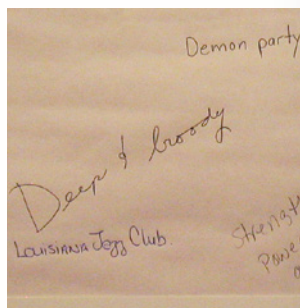 Demon party
Deep & broody
Louisiana Jazz Club.
Strengt
Powe